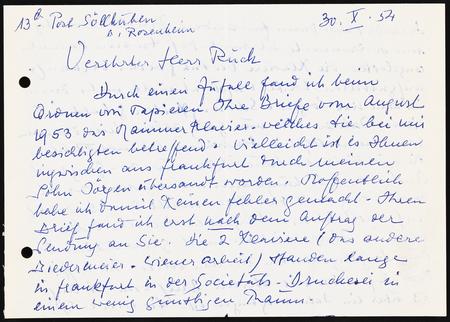 13a Post Söllhuben
b, Rosenheim
30. X. 54
Verehrter Herr Rück
Durch einen Zufall fand ich beim
Ordnen von Papieren Ihre Briefe vom August
1953 das Hammerklavier. welches Sie bei mir
besichtigten betreffend. Vielleicht ist es Ihnen
inzwischen aus Frankfurt durch meinen
Sohn Jörgen übersandt worden. Hoffentlich
habe ich damit keinen Fehler gemacht. Ihren
Brief fand ich erst nach dem Auftrag der
Sendung an Sie. Die 2 Klaviere (das andere
Biedermeier. Wiener Arbeit) standen lange
in Frankfurt in der Societäts-Druckerei in
einem wenig günstigen Raum.